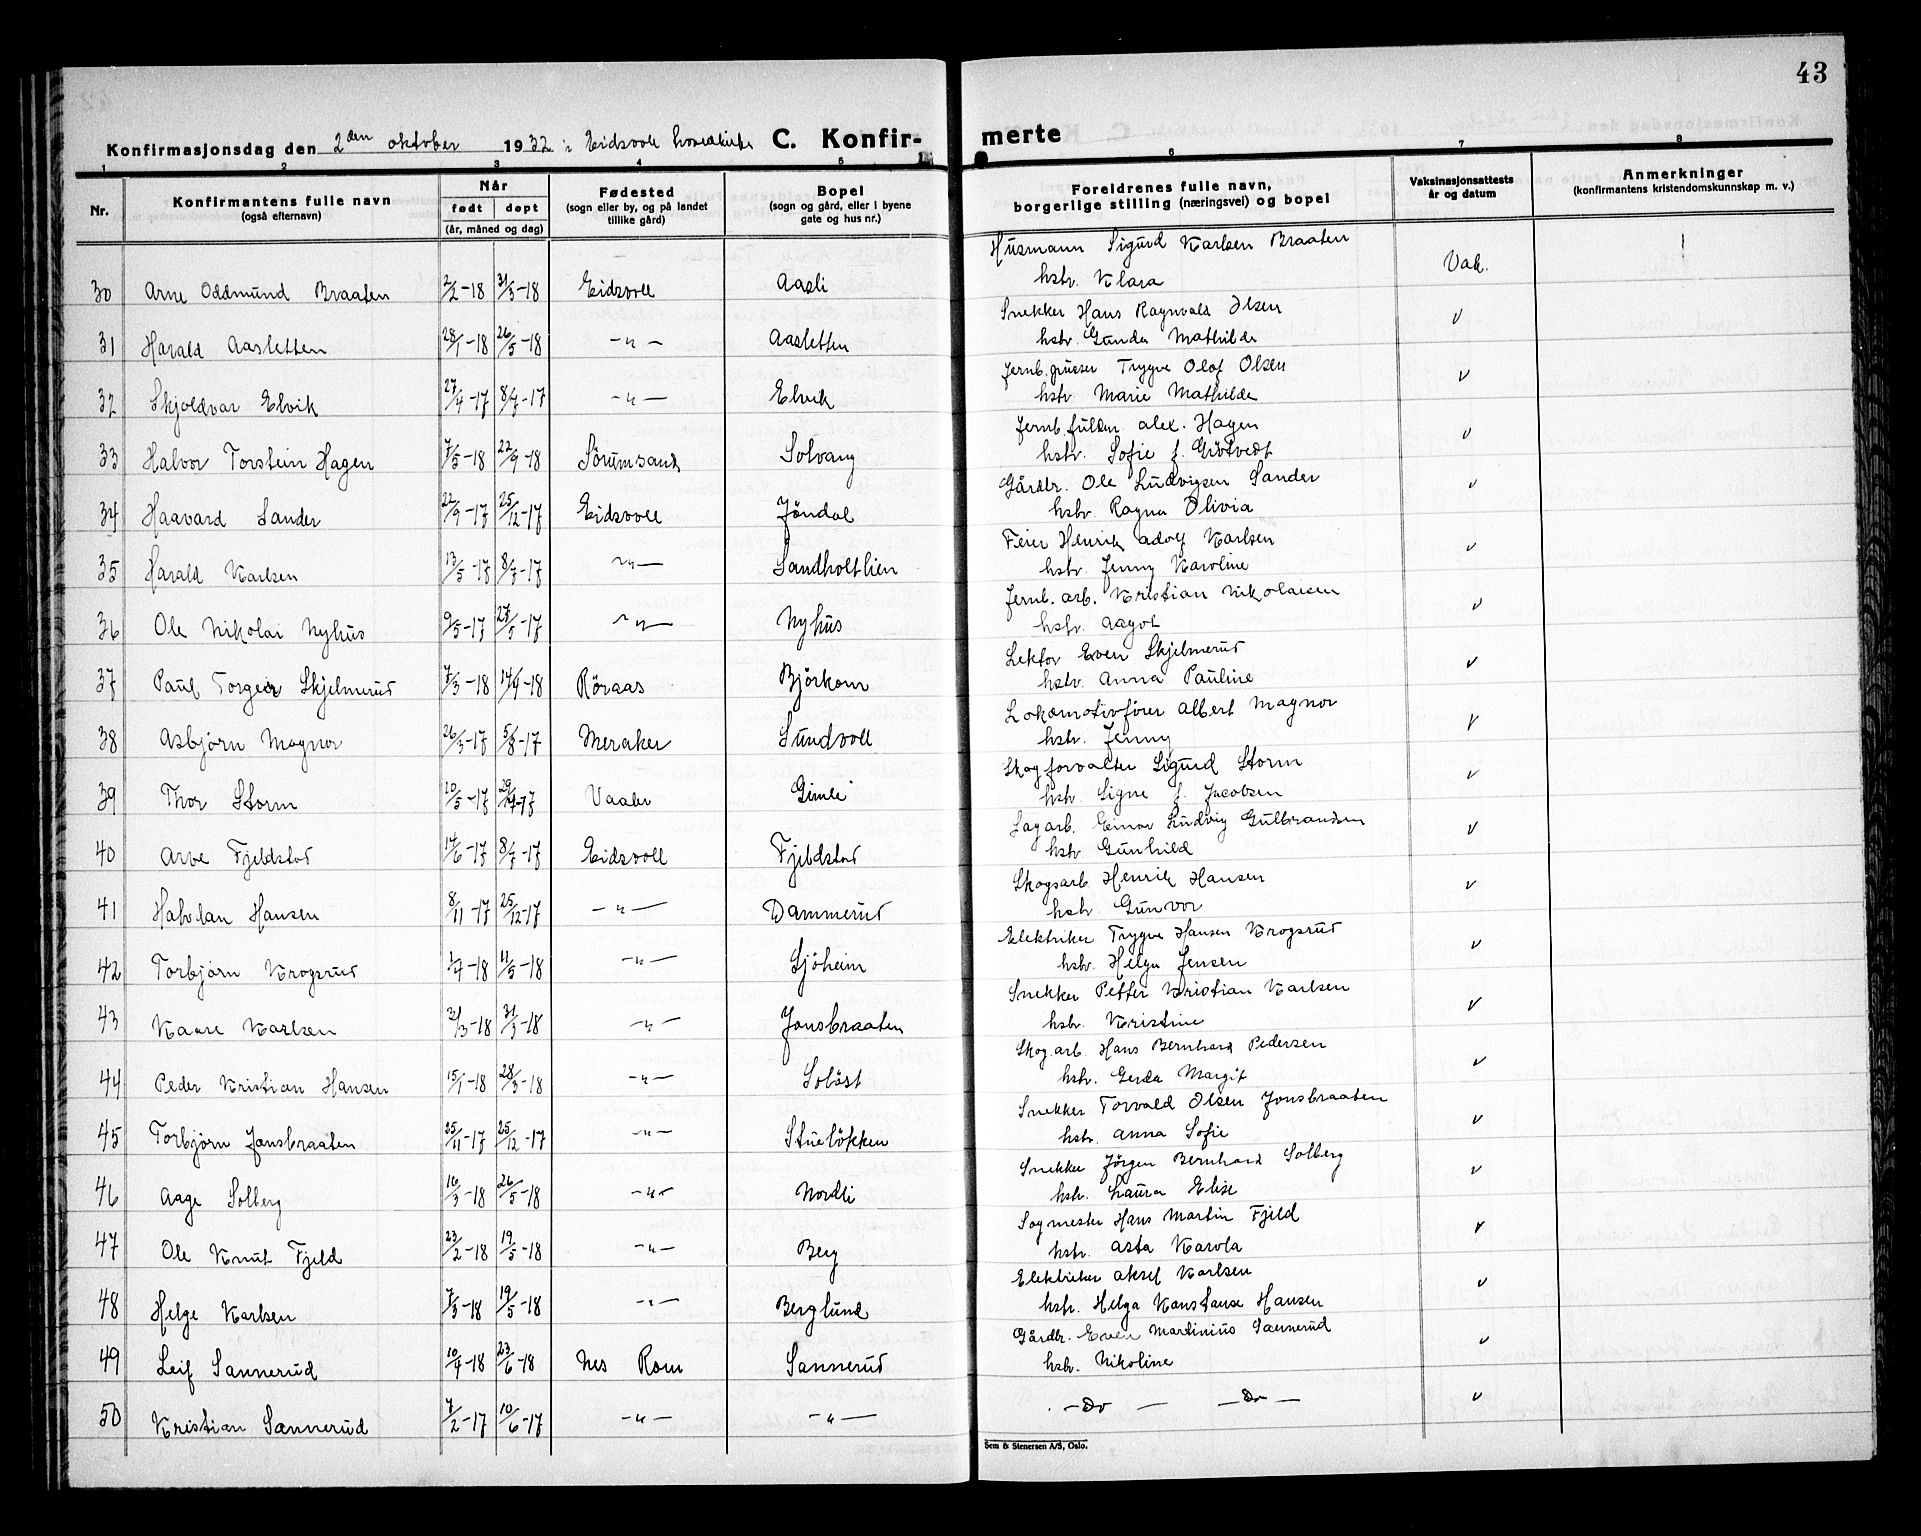 43
Konfirmasjonsdag den 2den oktober 1932 i Eidsvoll hovedkirke C. Konfir- merte
1 2 3 4 5 6 7 8
Nr. Konfirmantens fulle navn (også efternavn) Når født døpt (år, måned og dag) Fødested (sogn eller by, og på landet tillike gård) Bopel (sogn og gård, eller i byene gate og hus nr.) Foreldrenes fulle navn, borgerlige stilling (næringsvei) og bopel Vaksinasjonsattests år og datum Anmerkninger (konfirmantens kristendomskunnskap m. v.)
30 Arne Oddmund Braaten 2/2-18 31/3-18 Eidsvoll Aasli Husmann Sigurd Karlsen Braaten Vak.
hstr. Klara
31 Harald Aasletten 28/1-18 26/5-18 -"- Aasletten Snekker Hans Ragnvald Olsen v
hstr. Gunda Mathilde
32 Skjoldvar Elvik 27/4-17 8/7-17 -"- Elvik Jernb. pusser Trygve Olaf Olsen v
hstr. Marie Mathilde
33 Halvor Torstein Hagen 7/5-18 22/9-18 Sörumsand Solvang Jernb. fuldm. Alex. Hagen v
hstr. Sofie f. Grötvedt
34 Haavard Sander 22/9-17 25/12-17 Eidsvoll Jöndal Gårdbr. Ole Ludvigsen Sander v
hstr. Ragna Olivia
35 Harald Karlsen 13/5-17 8/7-17 -"- Sandholtlien Feier Henrik Adolf Karlsen v
hstr. Jenny Karoline
36 Ole Nikolai Nyhus 9/5-17 27/5-17 -"- Nyhus Jernb. arb. Kristian Nikolaisen v
hstr. Aagot
37 Paul Torgeir Skjelmerud 7/3-18 14/4-18 Röraas Björkom Lektor Even Skjelmerud v
hstr. Anna Pauline
38 Asbjörn Magnor 26/3-17 5/8-17 Meraker Sundvoll Lokomotivförer Albert Magnor v
hstr. Jenny
39 Thor Storm 10/5-17 29/9-17 Vaaler Gimle Skogforvalter Sigurd Storm v
hstr. Signe f. Jacobsen
40 Arve Fjeldstad 14/6-17 8/7-17 Eidsvoll Fjeldstad Sagarb. Einar Ludvig Gulbrandsen v
hstr. Gunhild
41 Halvdan Hansen 8/11-17 25/12-17 -"- Dammerud Skogsarb Henrik Hansen v
hstr. Gunvor
42 Torbjörn Krogsrud 1/4-18 11/5-18 -"- Sjöheim Elektriker Trygve Hansen Krogsrud v
hstr. Helga Jensen
43 Kaare Karlsen 2/3-18 31/3-18 -"- Jonsbraaten Snekker Petter Kristian Karlsen v
hstr. Kristine
44 Peder Kristian Hansen 15/1-18 28/3-18 -"- Soløst Skog. arb. Hans Bernhard Pedersen v
hstr. Gerda Margit
45 Torbjörn Jonsbraaten 25/11-17 25/12-17 -"- Stuelökken Snekker Torvald Olsen Jonsbraaten v
hstr. Anna Sofie
46 Aage Solberg 16/3-18 26/5-18 -"- Nordli Snekker Jörgen Bernhard Solberg v
hstr. Laura Elise
47 Ole Knut Fjeld 23/2-18 19/5-18 -"- Berg Sagmester Hans Martin Fjeld v
hstr. Asta Karola
48 Helge Karlsen 7/3-18 19/5-18 -"- Berglund Elektriker Aksel Karlsen v
hstr. Helga Konstanse Hansen
49 Leif Sannerud 10/4-18 23/6-18 Nes Rom Sannerud Gårdbr. Even Martinius Sannerud v
hstr. Nikoline
50 Kristian Sannerud 7/2-17 10/6-17 -"- -"- - Do - - Do - v
Sem & Stenersen A/S, Oslo.